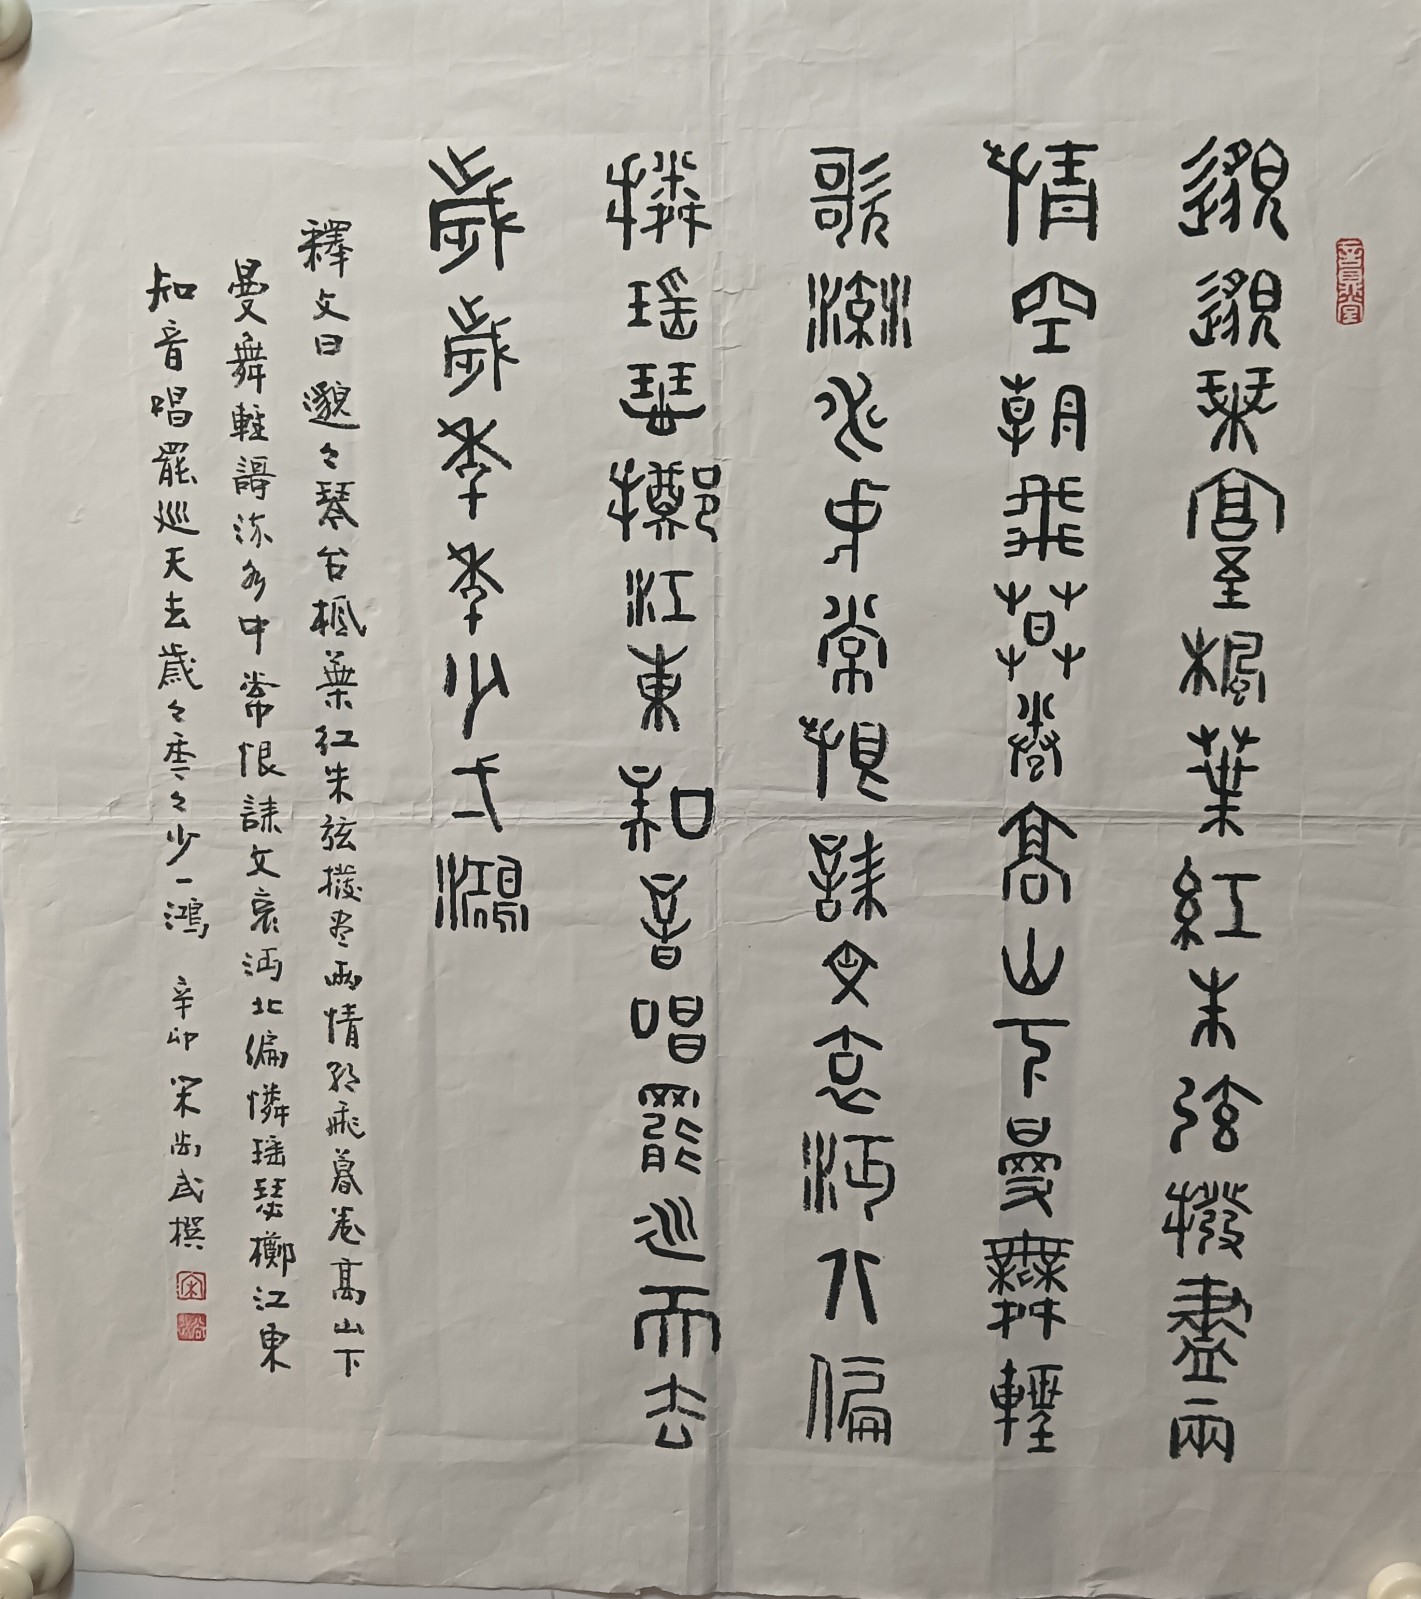 邈邈琹臺楓葉紅朱弦撥盡兩
情空朝飛莫卷高山下曼舞輕
歌流水中常恨誄文哀沔北偏
憐瑤瑟擲江東知音唱罷巡天去
歲歲秊秊少弌鴻
釋文曰邈々琴台楓葉紅朱弦撥尽兩情飛暮卷高山下
曼舞輕謌流水中常恨誄文哀沔北偏憐瑶瑟擲江東
知音唱罷巡天去歲々秊々少一鴻 辛卯 宋尚武撰
宋